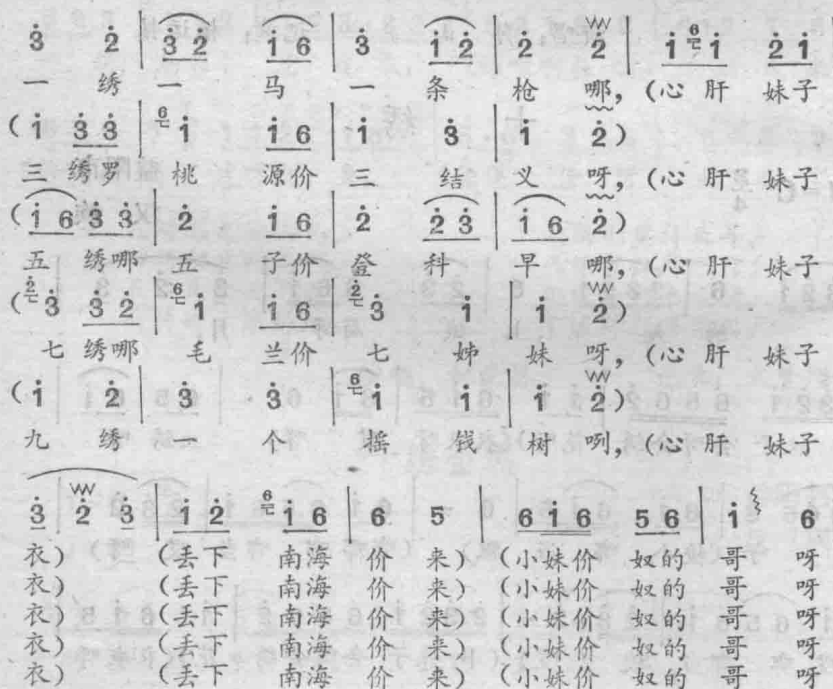 3̇ 2̇ | 3̇ 2̇ 1̇ 6 | 3̇ 1̇ 2̇ | 2̇ 2̇ | 1̇ 6 1̇ 2̇ 1̇
一 绣 一 马 一 条 枪 哪,(心 肝 妹子
(1̇ 3̇ 3̇ | 6 1̇ 1̇ 6 | 1̇ 3̇ | 1̇ 2̇)
三 绣罗 桃 源价 三 结 义 呀,(心 肝 妹子
(1̇ 6 3̇ 3̇ | 2̇ 1̇ 6 | 2̇ 2̇ 3̇ | 1̇ 6 2̇)
五 绣哪 五 子价 登 科 早 哪,(心 肝 妹子
(2̇ 3̇ 3̇ 2̇ | 6 1̇ 1̇ 6 | 2̇ 3̇ 1̇ | 1̇ 2̇)
七 绣哪 毛 兰价 七 姊 妹 呀,(心 肝 妹子
(1̇ 2̇ | 3̇ 3̇ | 6 1̇ 1̇ | 1̇ 2̇)
九 绣 一 个 摇 钱 树 咧,(心 肝 妹子
3̇ 2̇ 3̇ | 1̇ 2̇ 6 1̇ 6 | 6 5 | 6 1̇ 6 5 6 | 1̇ 6
衣) (丢下 南海 价 来) (小妹价 奴的 哥 呀
衣) (丢下 南海 价 来) (小妹价 奴的 哥 呀
衣) (丢下 南海 价 来) (小妹价 奴的 哥 呀
衣) (丢下 南海 价 来) (小妹价 奴的 哥 呀
衣) (丢下 南海 价 来) (小妹价 奴的 哥 呀